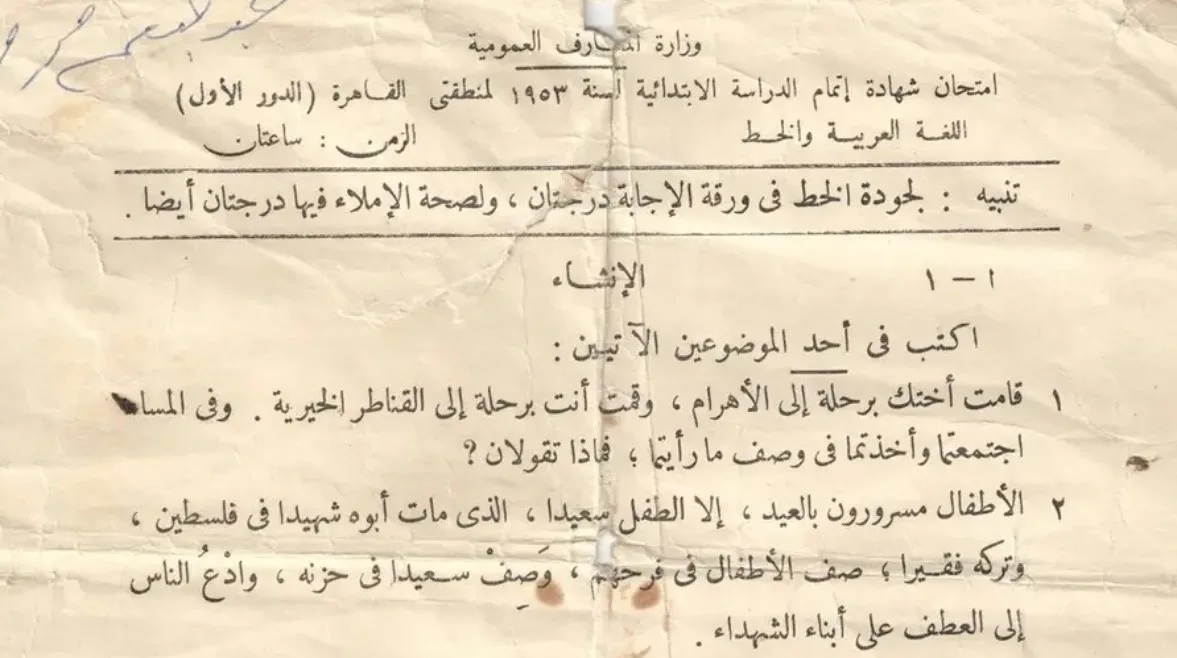 وزارة المعارف العمومية
امتحان شهادة إتمام الدراسة الابتدائية لسنة ١٩٥٣ لمنطقتى القاهرة (الدور الأول)
اللغة العربية والخط الزمن : ساعتان
تنبيه : لجودة الخط فى ورقة الإجابة درجتان ، ولصحة الإملاء فيها درجتان أيضا .
ا – ١ الإنشاء
اكتب فى أحد الموضوعين الآتيين :
١ قامت أختك برحلة إلى الأهرام ، وقمت أنت برحلة إلى القناطر الخيرية . وفى المساء
اجتمعتما وأخذتما فى وصف ما رأيتما ؛ فماذا تقولان ؟
٢ الأطفال مسرورون بالعيد ، إلا الطفل سعيدا ، الذى مات أبوه شهيدا فى فلسطين ،
وتركه فقيرا ؛ صف الأطفال فى فرحهم ، وَصِفْ سعيدا فى حزنه ، وادْعُ الناس
إلى العطف على أبناء الشهداء .